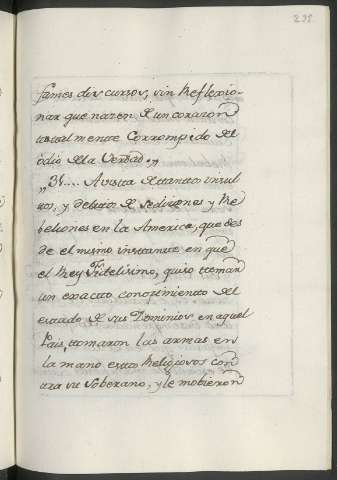 232
fames discursos, sin Reflexio-
nar que nazen de un corazon
totalmente Corrompido del
odio dela Verdad.„
„31.... A vista de tantos insul
tos, y delitos de sediziones y Re
beliones en la America, que des
de el mismo instante en que
el Rey Fidelisimo, quiso tomar
un exacto conozimiento del
estado de sus Dominios en aquel
Pais, tomaron las armas en
la mano estos Religiosos con
tra su Soberano, y le mobieron